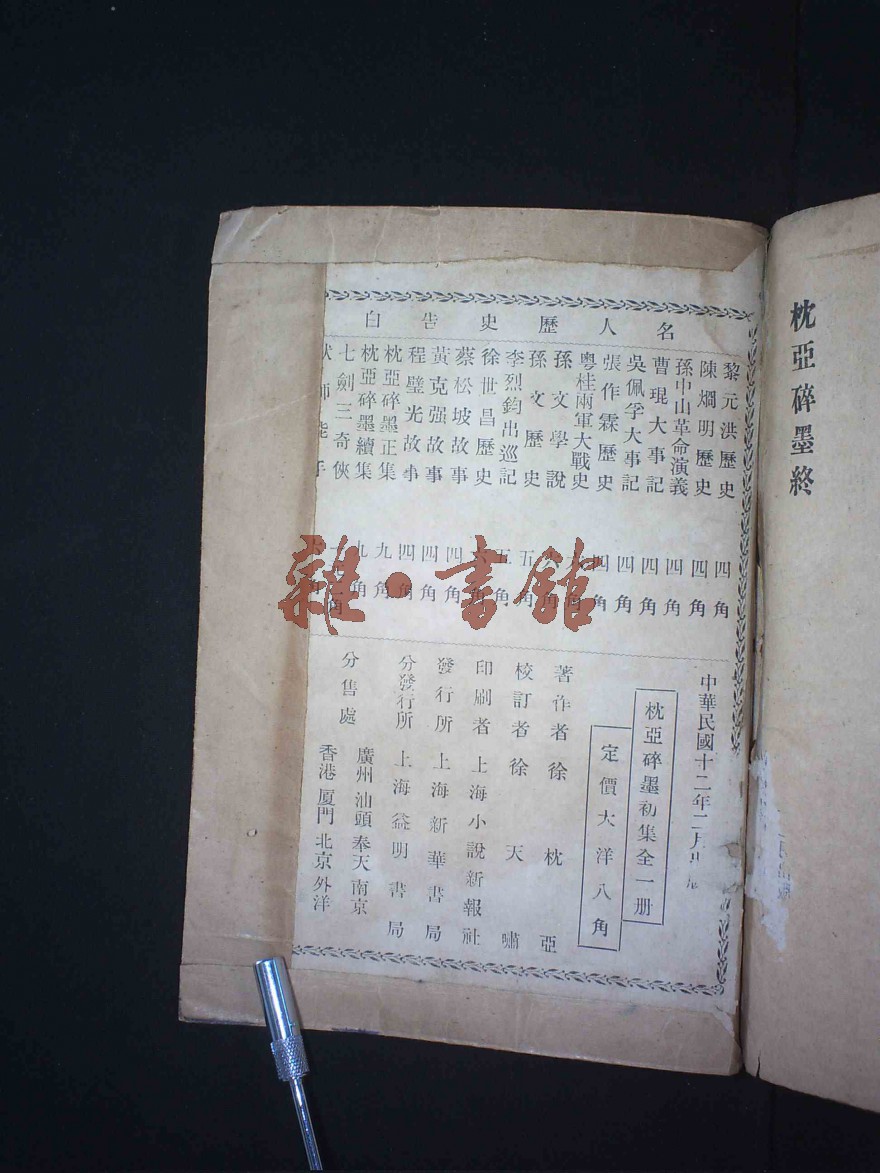 枕亞碎墨終
名人歷史告白
黎元洪歷史 四角
陳烱明歷史 四角
孫中山革命演義 四角
曹琨大事記 四角
吳佩孚大事記 四角
張作霖歷史 四角
粵桂兩軍大戰史 角
孫文學說 角
孫文歷史 五角
李烈鈞出巡記 五角
徐世昌歷史 角
蔡松坡故事 四角
黃克强故事 四角
程璧光故事 四角
枕亞碎墨正集 九角
枕亞碎墨續集 九角
七劍三奇俠 角
師能手
中華民國十二年二月
枕亞碎墨初集全一册
定價大洋八角
著作者 徐枕亞
校訂者 徐天嘯
印刷者 上海小說新報社
發行所 上海新華書局
分發行所 上海益明書局
分售處 廣州 汕頭 奉天 南京
香港 厦門 北京 外洋
雜·書館